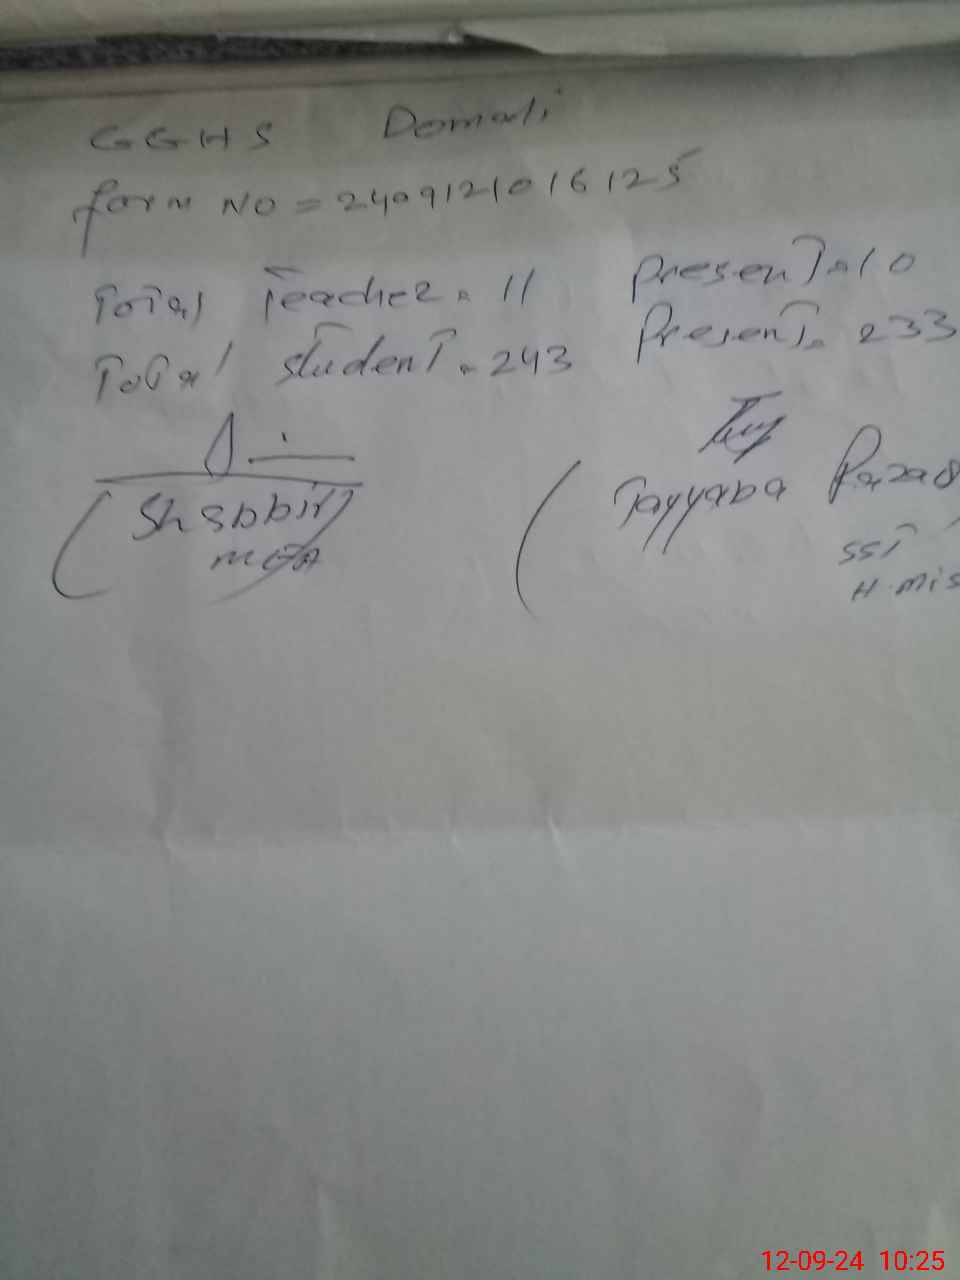 GGHS Domali
form NO = 2409121016125
Total Teacher = 11 Present = 10
Total student = 243 Present = 233
(Shabbir)
MEA
(Tayyaba
SST
H.mis
12-09-24 10:25